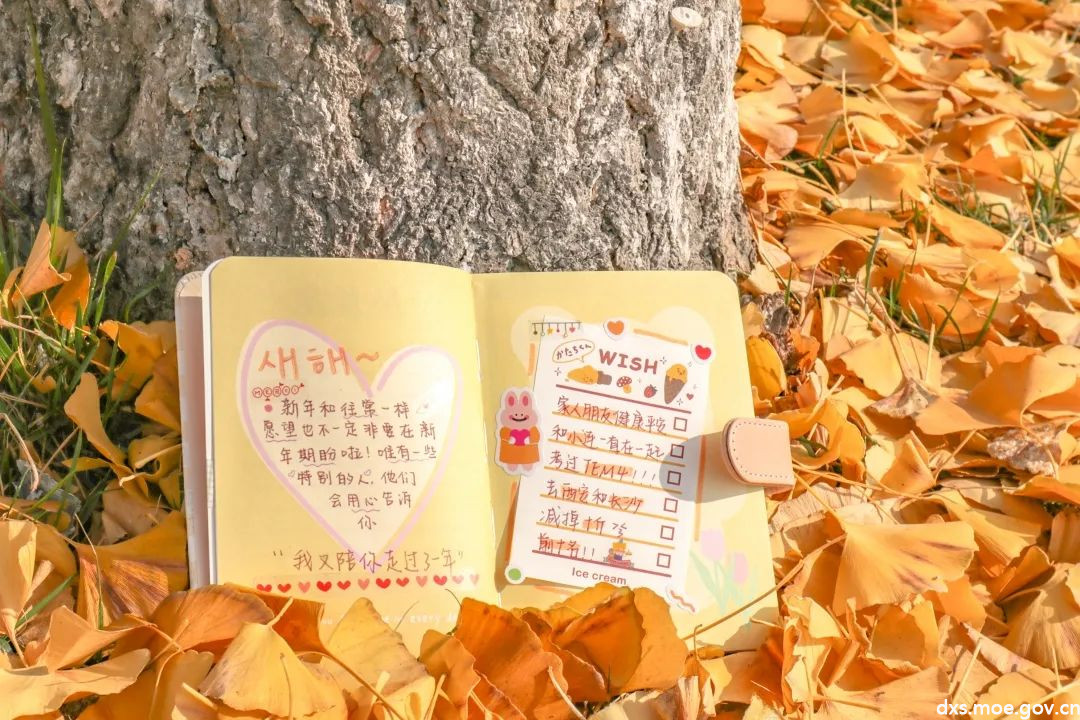 새해~
MERCI
新年和往常一样
愿望也不一定非要在新
年期盼啦！唯有一些
特别的人，他们
会用心告诉
你
"我又陪你走过了一年"
かたちくん
WISH
家人朋友健康平安
和小连一直在一起
考过TEM4!!!
去西安和长沙
减掉10斤
前十名!!
Ice cream
every d
dxs.moe.gov.cn